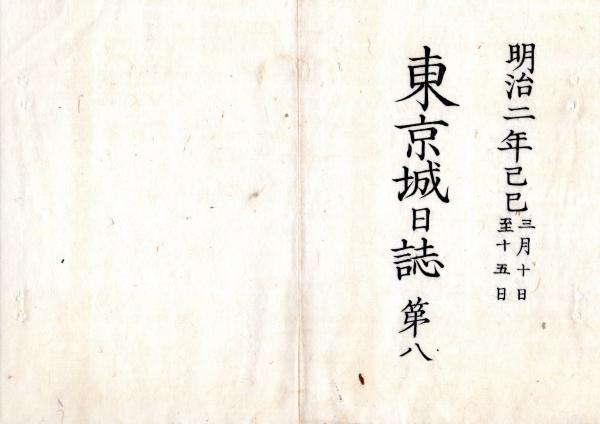 明治二年己巳
三月十日
至十五日
東京城日誌 第八